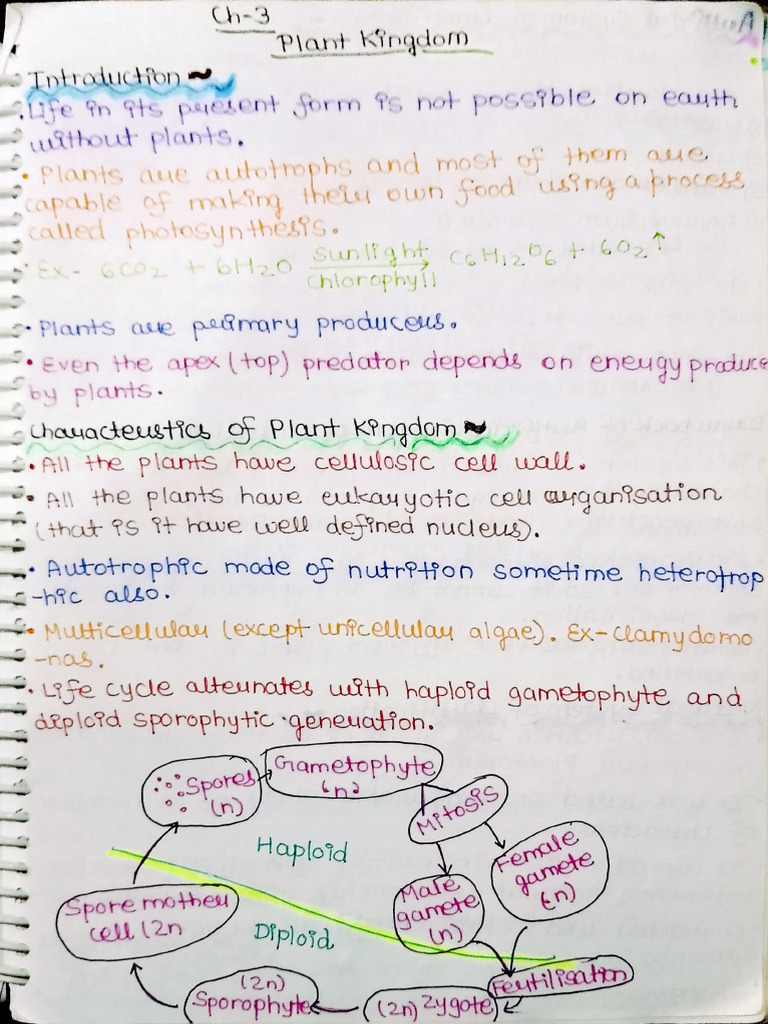 Ch-3
Plant Kingdom
Introduction ~
• Life in its present form is not possible on earth
without plants.
• Plants are autotrophs and most of them are
capable of making their own food using a process
called photosynthesis.
• Ex- 6CO2 + 6H2O sunlight → C6H12O6 + 6O2↑
chlorophyll
• Plants are primary producers.
• Even the apex (top) predator depends on energy produce
by plants.
Characteristics of Plant Kingdom ~
• All the plants have cellulosic cell wall.
• All the plants have eukaryotic cell organisation
(that is it have well defined nucleus).
• Autotrophic mode of nutrition sometime heterotrop
-hic also.
• Multicellular (except unicellular algae). Ex-clamydomo
-nas.
• Life cycle alternates with haploid gametophyte and
diploid sporophytic generation.
Gametophyte
(n)
Spores
(n)
Mitosis
Haploid
Female
gamete
(n)
Male
gamete
(n)
Spore mother
cell (2n
Diploid
Fertilisation
(2n)
Sporophyte
(2n) Zygote